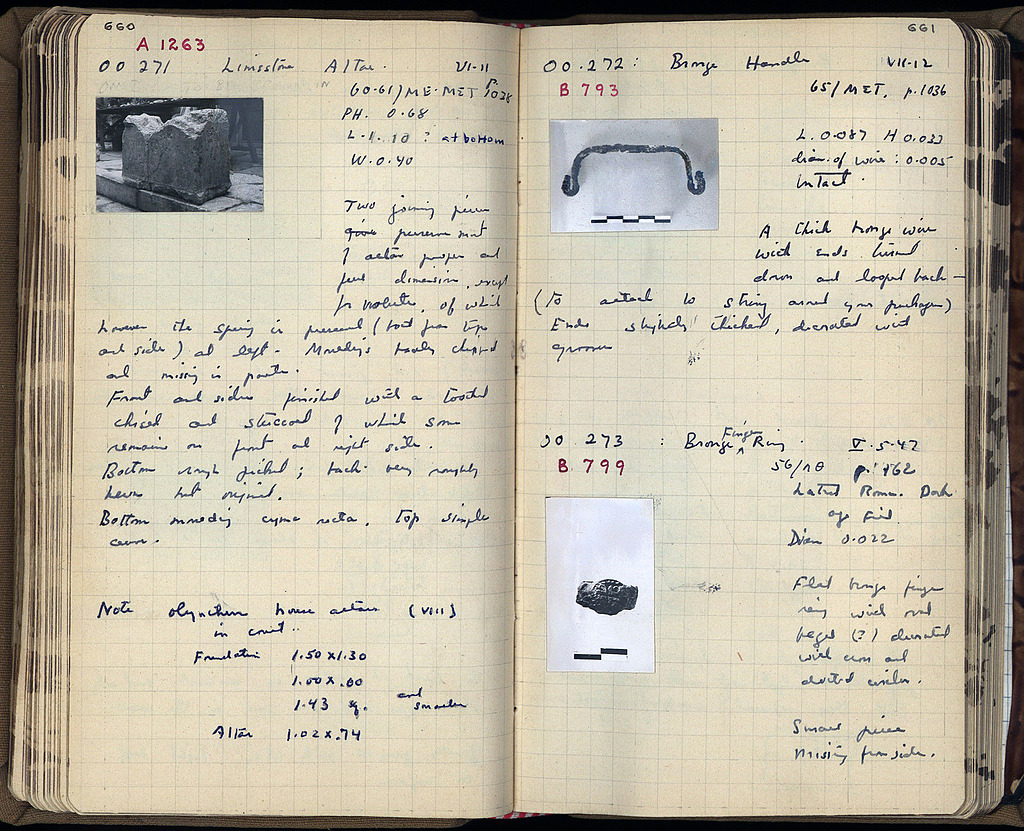 660
A 1263
OO 271 Limestone Altar. VI-11
60-61/ME-MET p 1038
PH. 0.68
L. 1.10 ? at bottom
W. 0.40
Two joining pieces
preserve most
of altar proper and
full dimension, except
for volutes, of which
however the spring is preserved (both from top
and side) at left. Mouldings badly chipped
and missing in parts.
Front and sides finished with a toothed
chisel and stuccoed of which some
remains on front and right side.
Bottom rough picked; back very roughly
hewn but original.
Bottom moulding cyma recta. Top simple
Note Olynthus house altars (VIII)
in court.
Foundation 1.50 x 1.30
1.00 x .80
1.43 sq. and smaller
Altar 1.02 x .74
661
OO. 272: Bronze Handle VII-12
B 793
65/MET. p. 1036
L. 0.087 H 0.033
diam. of wire: 0.005
Intact.
A thick bronze wire
with ends turned
down and looped back
(to attach to string around your packages)
Ends slightly thickened, decorated with
grooves
OO. 273: Bronze Finger Ring. V-5-47
B 799
56/ p. 1962
Latest Roman Dark
age fill
Diam 0.022
Flat bronze finger
ring with oval
bezel (?) decorated
with cross and
dotted circles.
Small piece
missing from side.